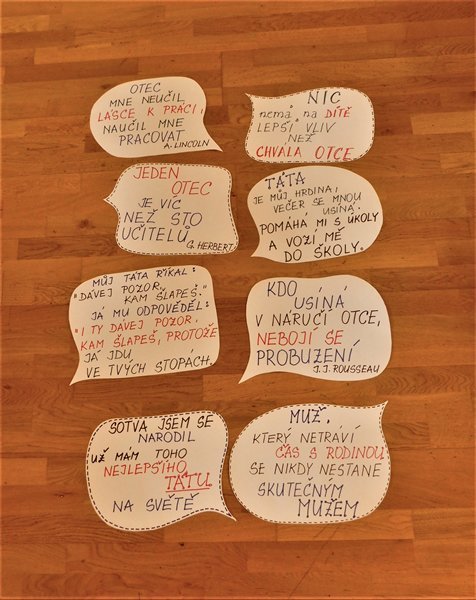 OTEC
MNE NEUČIL
LÁSCE K PRÁCI,
NAUČIL MNE
PRACOVAT
A. LINCOLN
NIC
nemá na DÍTĚ
LEPŠÍ VLIV
NEŽ
CHVÁLA OTCE
JEDEN
OTEC
JE VÍC
NEŽ STO
UČITELŮ
G. HERBERT
TÁTA
JE MŮJ HRDINA,
VEČER SE MNOU
USÍNÁ.
POMÁHÁ MI S ÚKOLY
A VOZÍ MĚ
DO ŠKOLY.
MŮJ TÁTA ŘÍKAL:
"DÁVEJ POZOR,
KAM ŠLAPEŠ."
JÁ MU ODPOVĚDĚL:
"I TY DÁVEJ POZOR,
KAM ŠLAPEŠ, PROTOŽE
JÁ JDU
VE TVÝCH STOPÁCH.
KDO
USÍNÁ
V NÁRUČÍ OTCE,
NEBOJÍ SE
PROBUZENÍ
J. J. ROUSSEAU
SOTVA JSEM SE
NARODIL
UŽ MÁM TOHO
NEJLEPŠÍHO
TÁTU
NA SVĚTĚ
MUŽ,
KTERÝ NETRÁVÍ
ČAS S RODINOU
SE NIKDY NESTANE
SKUTEČNÝM
MUŽEM